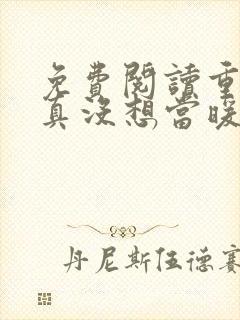 免費閱讀重
真沒想當暖
丹尼斯伍德賽